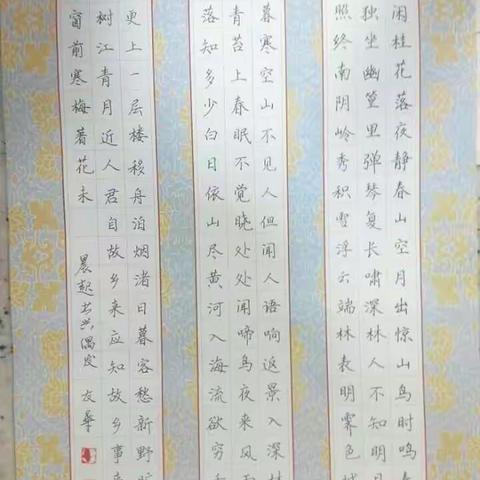 闲桂花落夜静春山空月出惊山鸟时鸣春
独坐幽篁里弹琴复长啸深林人不知明月
照终南阴岭秀积雪浮云端林表明霁色城
暮寒空山不见人但闻人语响返景入深林
青苔上春眠不觉晓处处闻啼鸟夜来风雨
落知多少白日依山尽黄河入海流欲穷千
更上一层楼移舟泊烟渚日暮客愁新野旷
树江青月近人君自故乡来应知故乡事来
窗前寒梅著花未
晨起书兴偶发 友